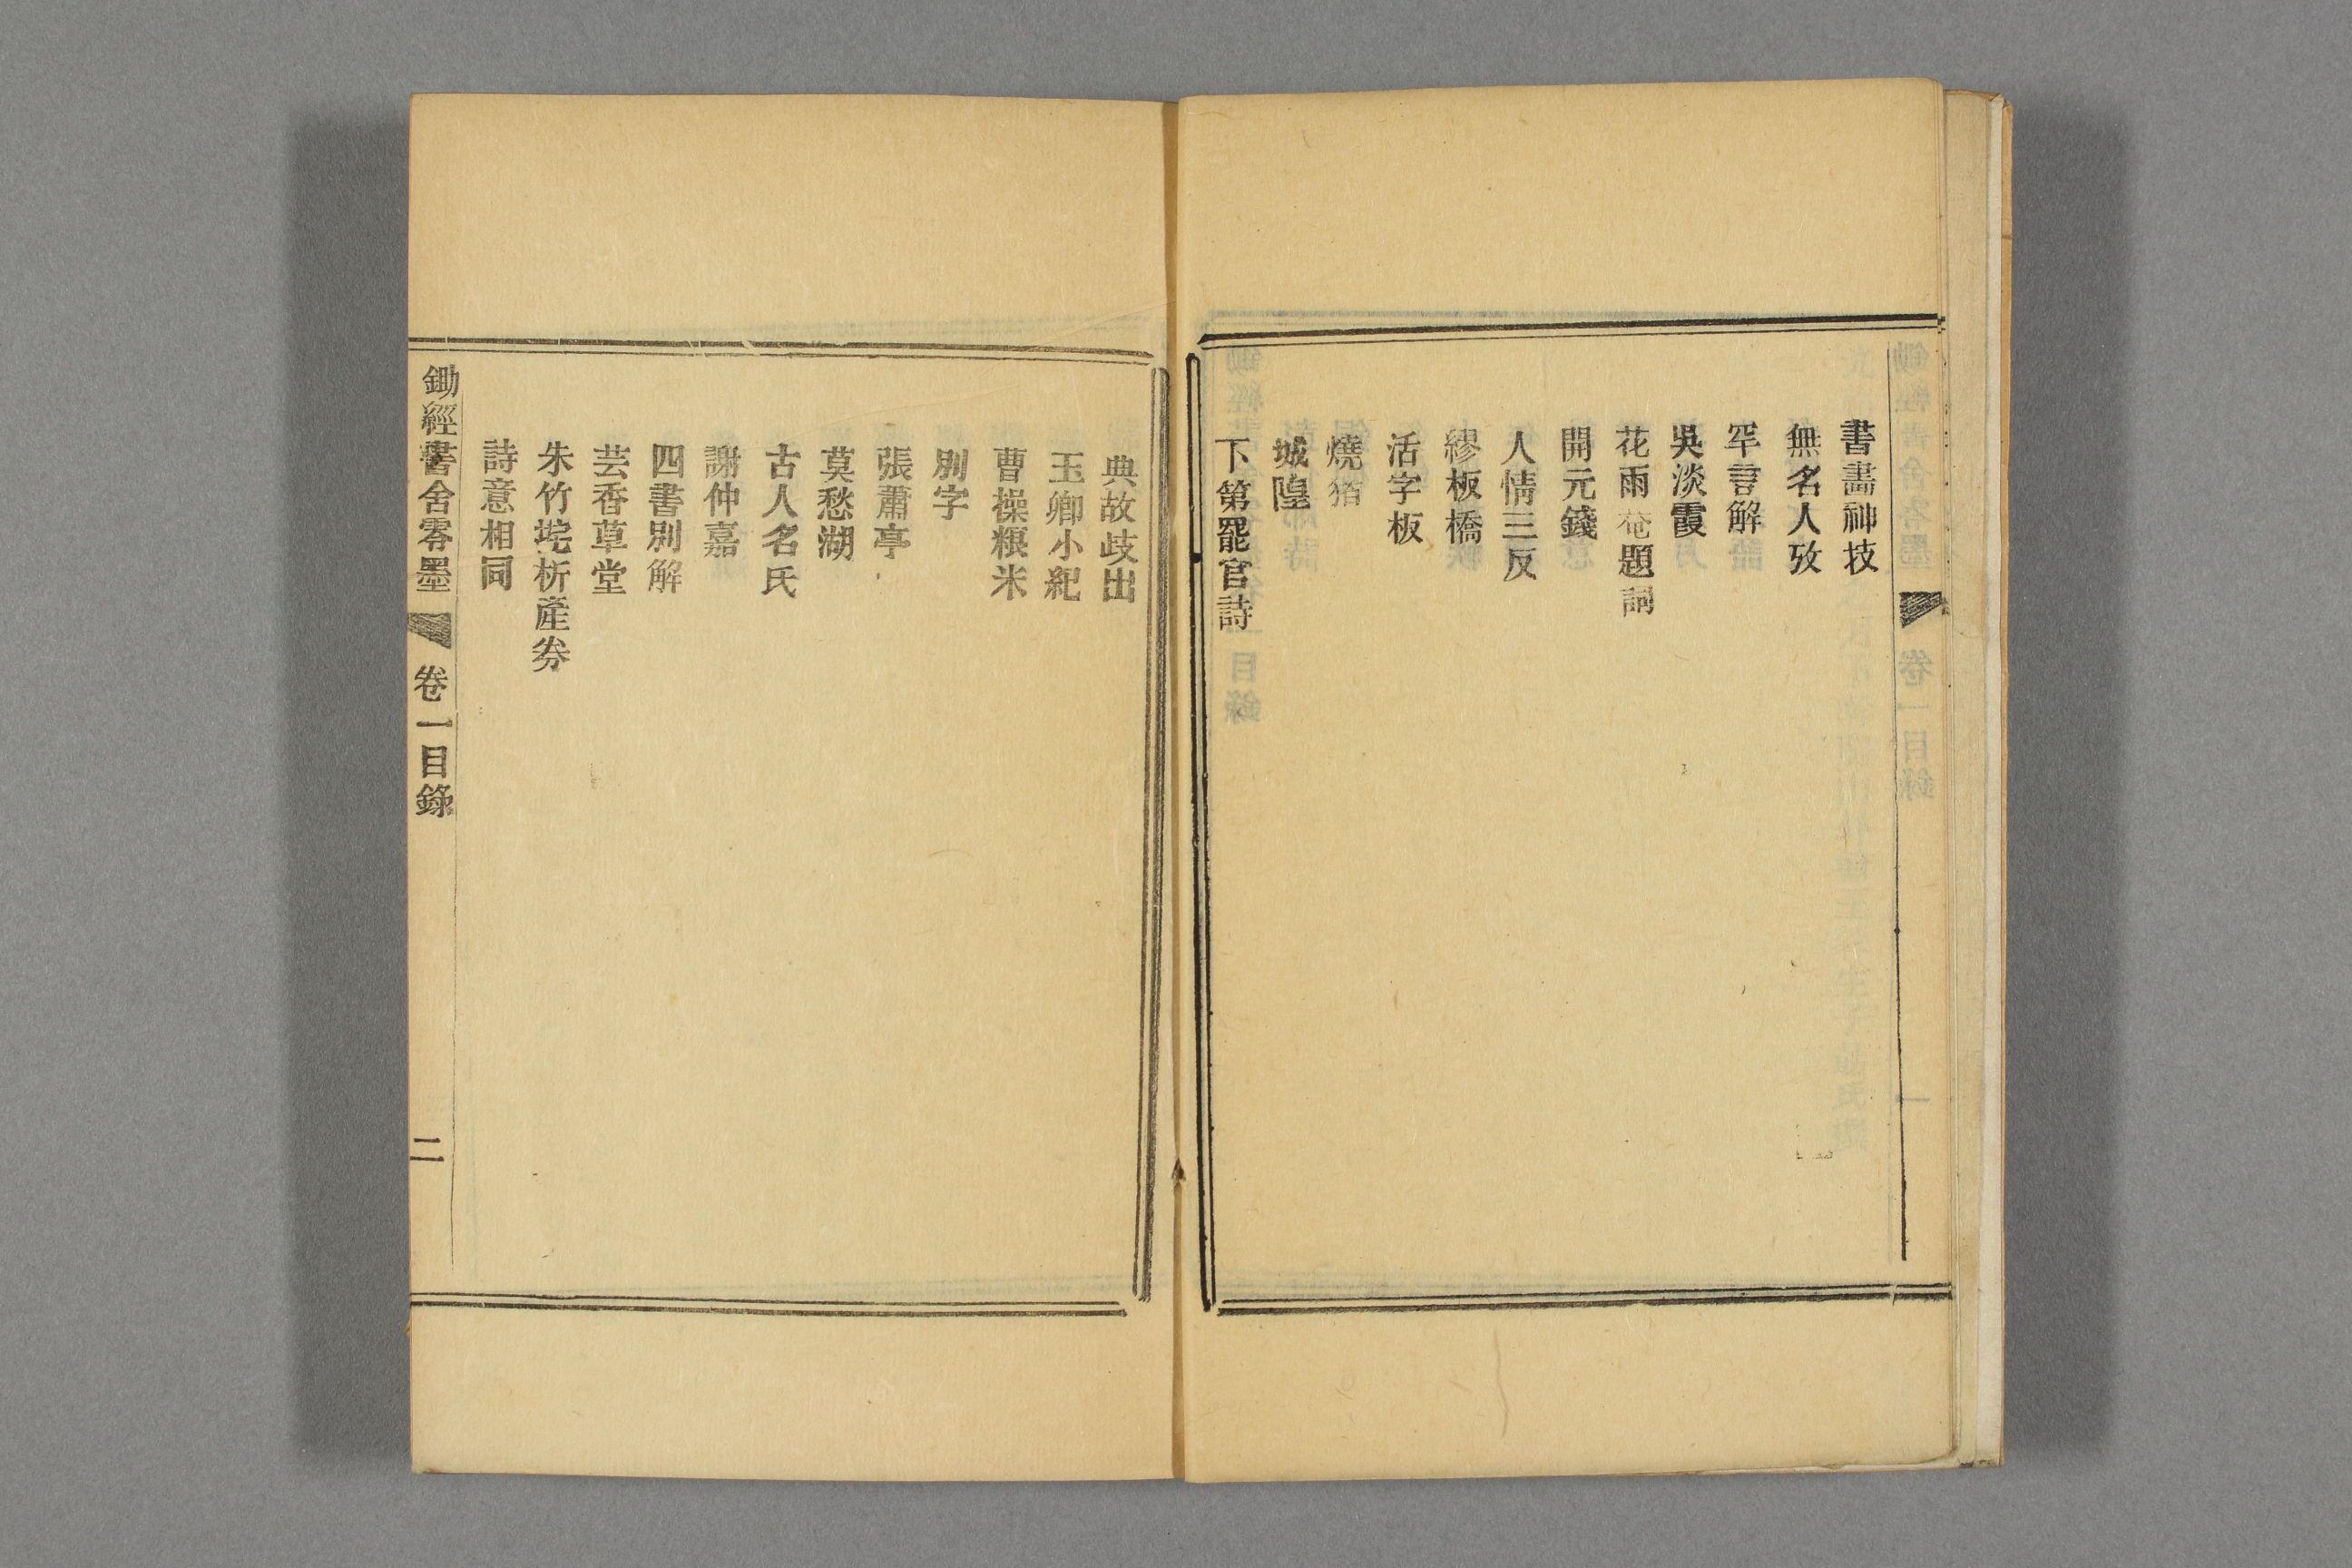 書畫神技
無名人攷
罕言解
吳淡霞
花雨菴題詞
開元錢
人情三反
繆板橋
活字板
燒猪
城隍
下第罷官詩
典故歧出
玉卿小紀
曹操粮米
別字
張蕭亭
莫愁湖
古人名氏
謝仲嘉
四書別解
芸香草堂
朱竹垞析產券
詩意相同
鋤經書舍零墨 卷一目錄 二